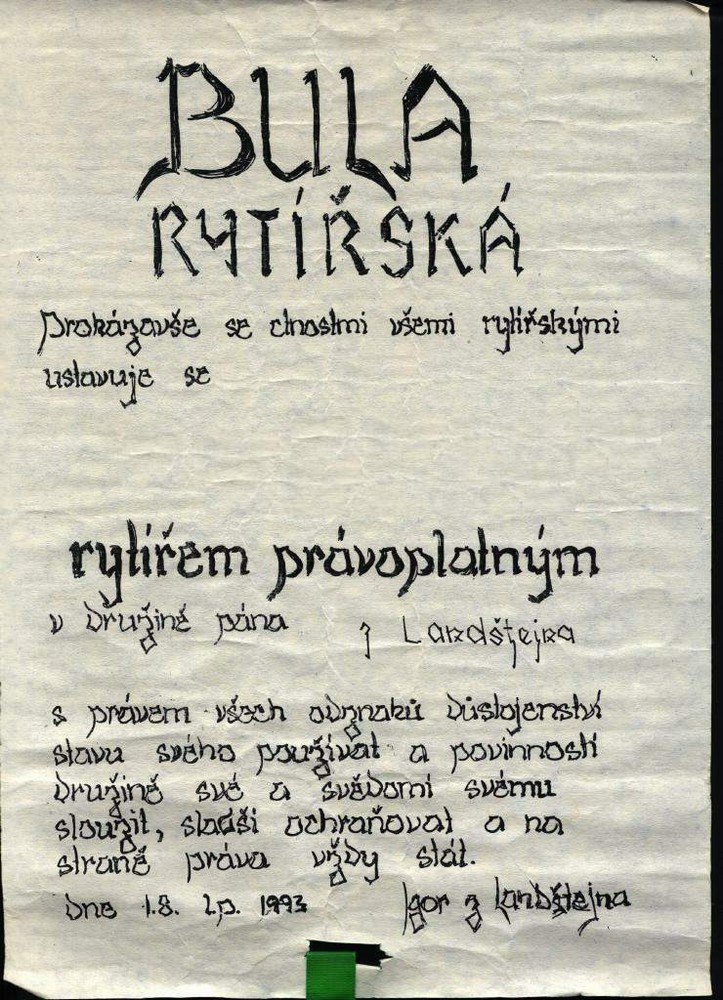 BULA
RYTÍŘSKÁ
Prokázavše se ctnostmi všemi rytířskými
ustavuje se
rytířem právoplatným
v družině pána z Landštejna
s právem všech odznaků důstojenství
stavu svého používat a povinností
družině své a svědomí svému
sloužit, slabší ochraňovat a na
straně práva vždy stát.
dne 1.8. l.p. 1993 Igor z Landštejna